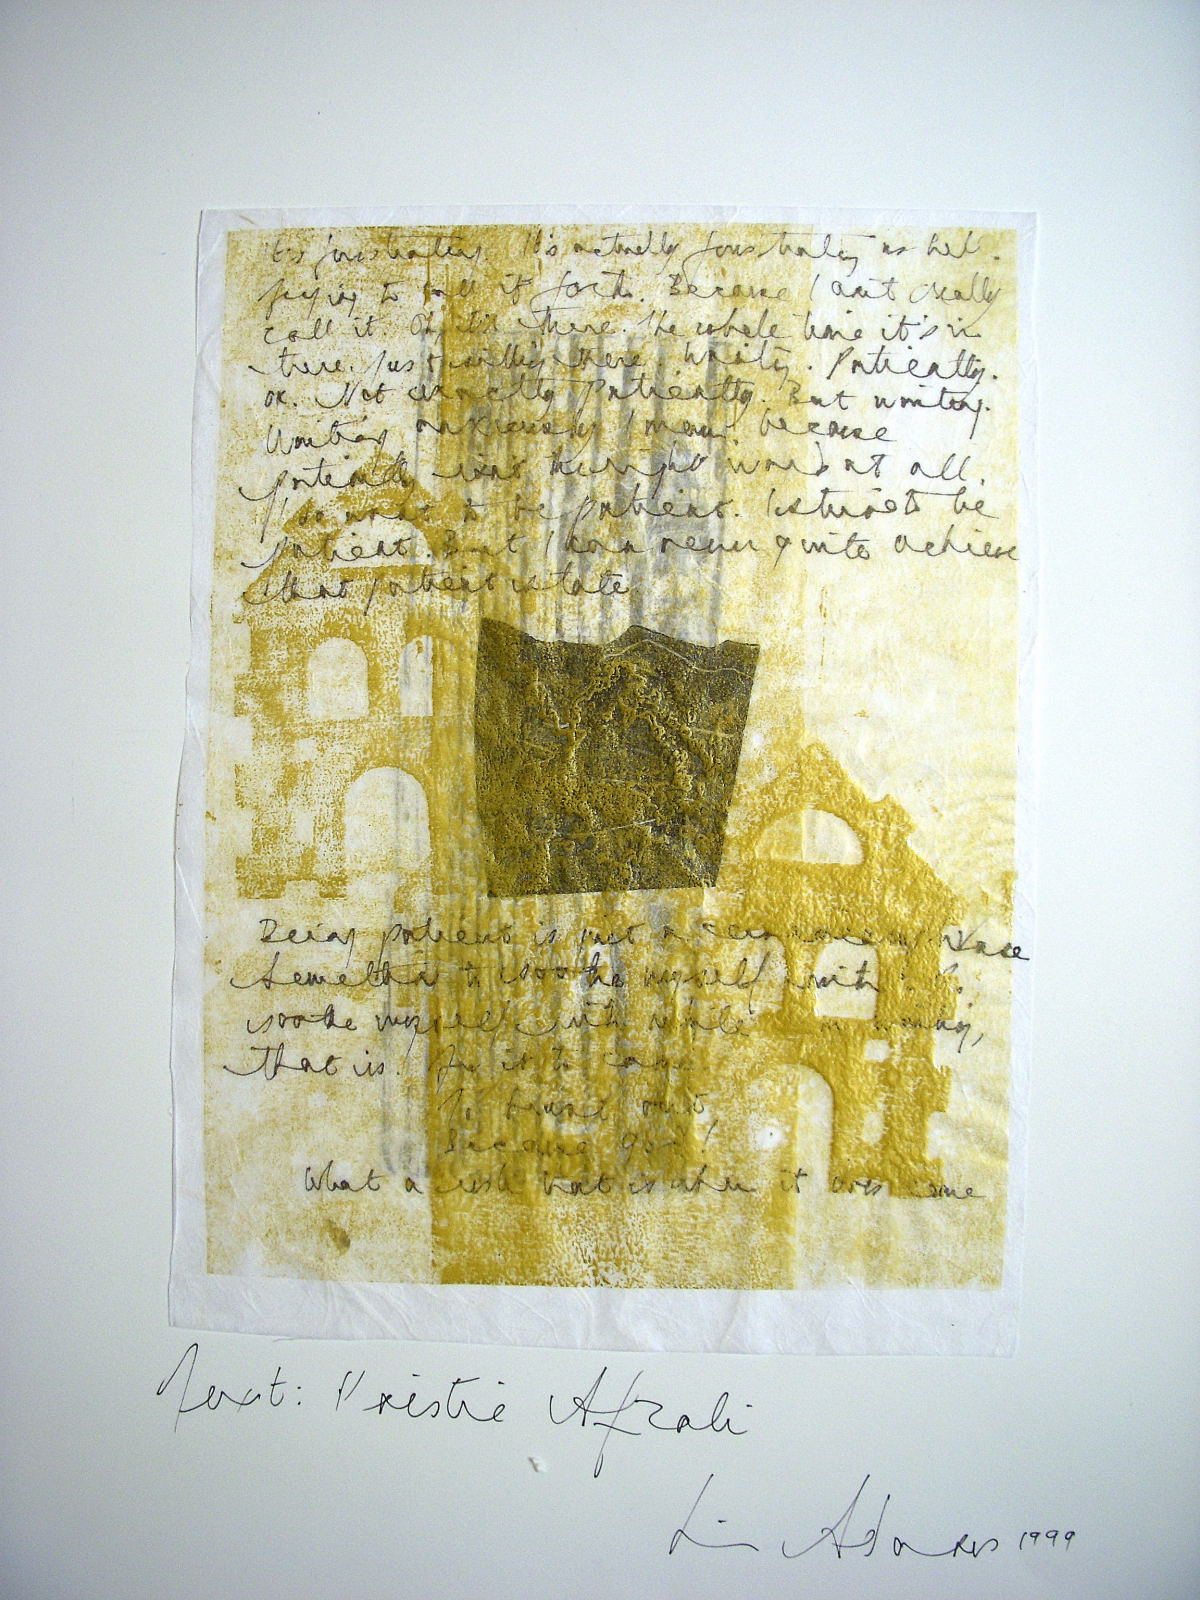 It's frustrating. It's actually frustrating as hell.
trying to call it forth. Because I can't really
call it. It's there. The whole time it's in
there. Just waiting there. Waiting. Patiently.
ok. Not exactly patiently. But waiting.
Waiting anxiously I mean. because
patiently isnt the right word at all.
to be patient. to be
patient. But I can never quite achieve
that patient state
Being patient is just a
to soothe myself with
soothe myself with while waiting,
that is. For it to come.
To bring out
Because god!
What a rush that is when it does come
Text: Kristie Afzali
1999